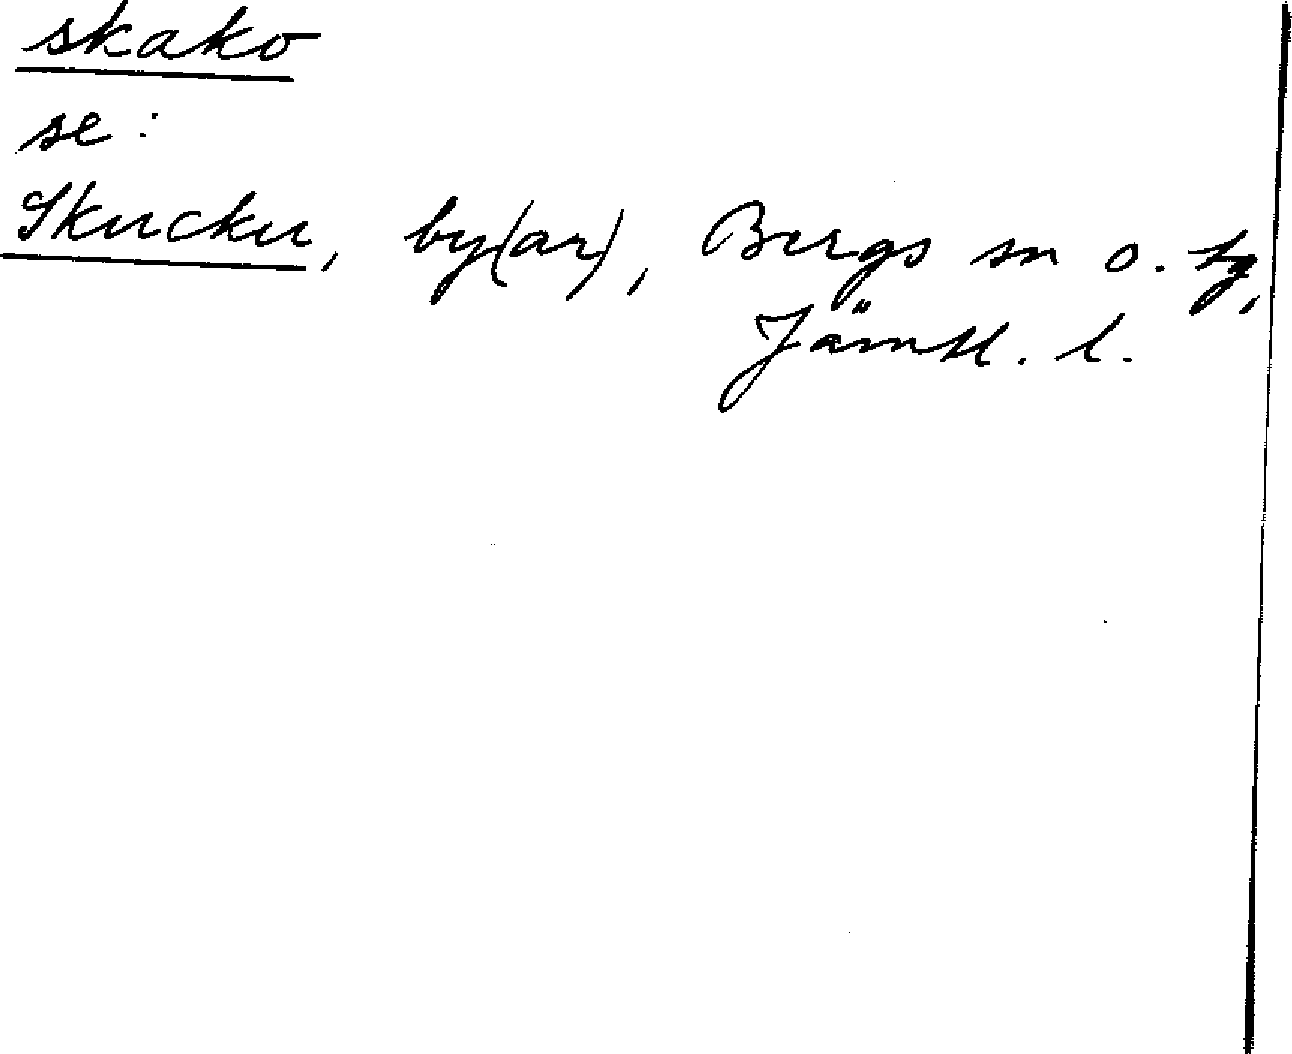 skako
se:
Skucku, by(ar), Bergs sn o. tg,
Jämtl. l.